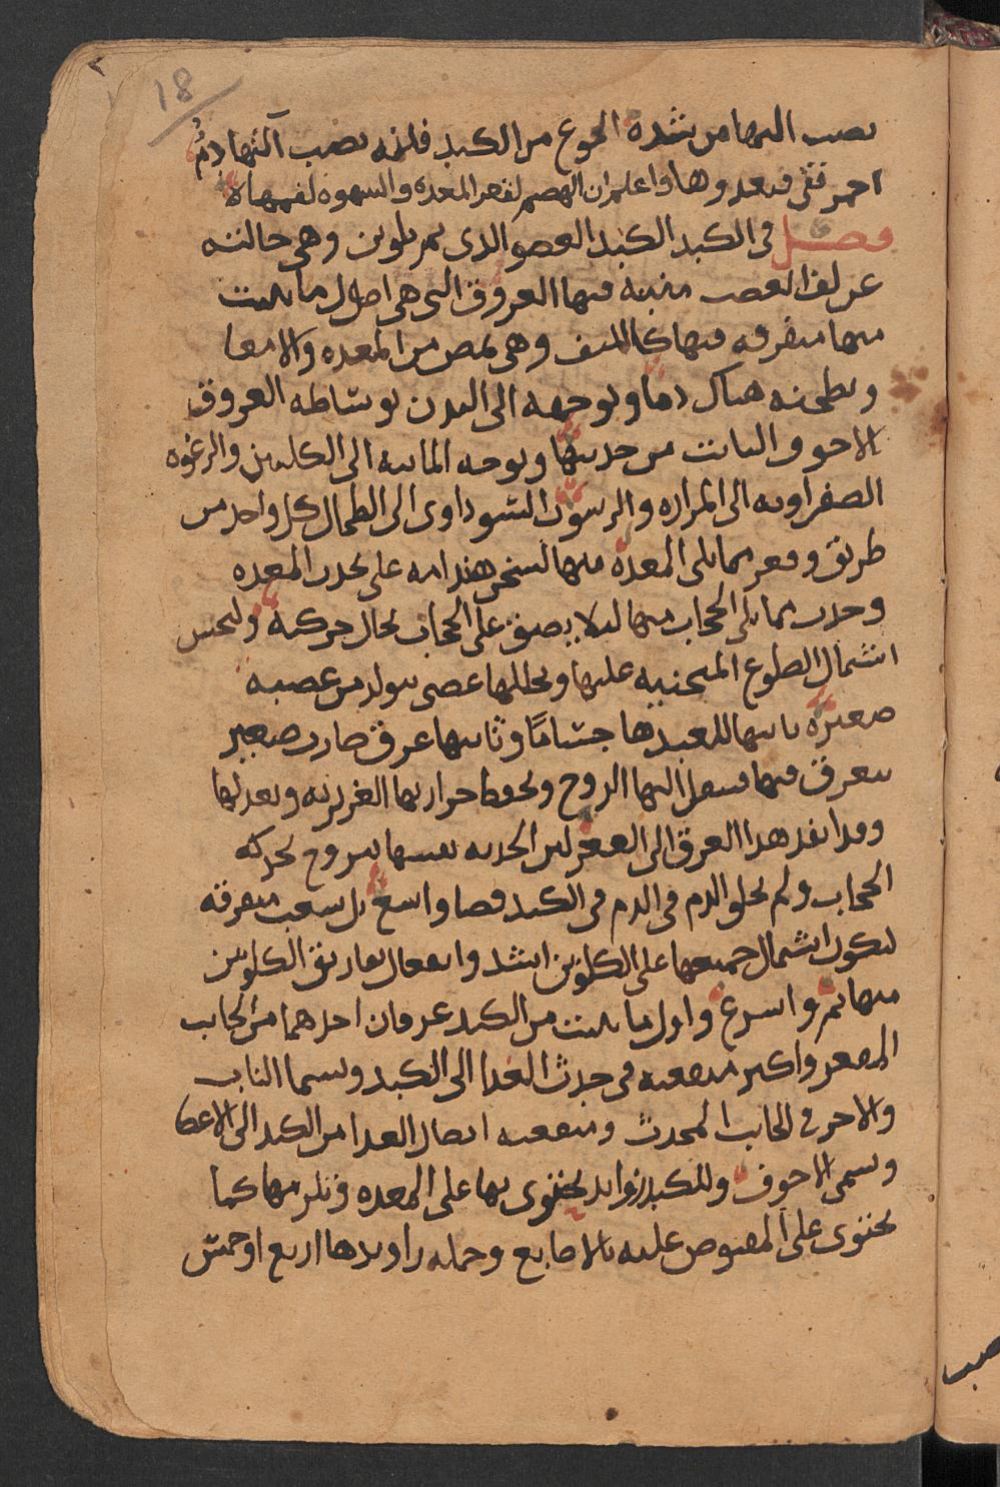 18
نصب اليها من شدة الجوع من الكبد فلزمه نصب آلتها دمٌ
احمر نقى فيغدوها واعلم ان الهضم لقعر المعدة والشهوه لفمها
فصل في الكبد الكبد العضو الذى يمر بلوين وهي خالته
عن لف العصب منبثه فيها العروق التى هى اصول ما ينبت
منها متفرقه فيها كالليف وهى تمص من المعده والامعا
وتطبخه هناك دما وتوجهه الى البدن بوساطه العروق
الاجوف النابت من حدبتها وتوجه المائيه الى الكليتين والرغوه
الصفراويه الى المراره والرسوب السوداوى الى الطحال كل واحد من
طريق وقعر مما يلى المعدة منها ليحسن هندامه على تحدب المعده
وحدب مما يلى الحجاب منها ليلا يضيق على الحجاب مجال حركته وليحسن
اشتمال الضلوع المنحنيه عليها ويجللها غشى يتولد من عصبه
صغيره ياتيها ليفيدها حساما وثانيها عرق ضارب صغير
يتفرق فيها فينقل اليها الروح ويحفظ حرارتها الغريزيه ويعدلها
وقد انفذ هذا العرق الى القعر لان الحدبه نفسها تتروح بحركه
الحجاب ولم يخلق الدم في الدم في الكبد فضا واسع بل شعب متفرقه
ليكون اشتمال جميعها على الكلوتين اشد وانفعال تفاريق الكلوتين
منها اتم واسرع واول ما ينبت من الكبد عرقان احدهما من الجانب
المقعر واكثر منفعته في جذب الغذا الى الكبد ويسما الباب
والاخر في الجانب المحدب ومنفعته ايصال الغذا من الكبد الى الاعضا
ويسمى الاجوف وللكبد زوايد تحتوى بها على المعده وتلزمها كما
يحتوى على المقبوض عليه بالاصابع وجمله زاويدها اربع او خمس